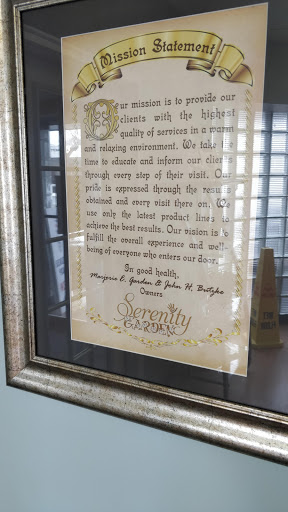 Mission Statement
Our mission is to provide our
clients with the highest
quality of services in a warm
and relaxing environment. We take the
time to educate and inform our clients
through every step of their visit. Our
pride is expressed through the results
obtained and every visit there on. We
use only the latest product lines to
achieve the best results. Our vision is to
fulfill the overall experience and well-
being of everyone who enters our door.
In good health,
Marjorie E. Gordon & John H. Britzke
Owners
Serenity
GARDEN